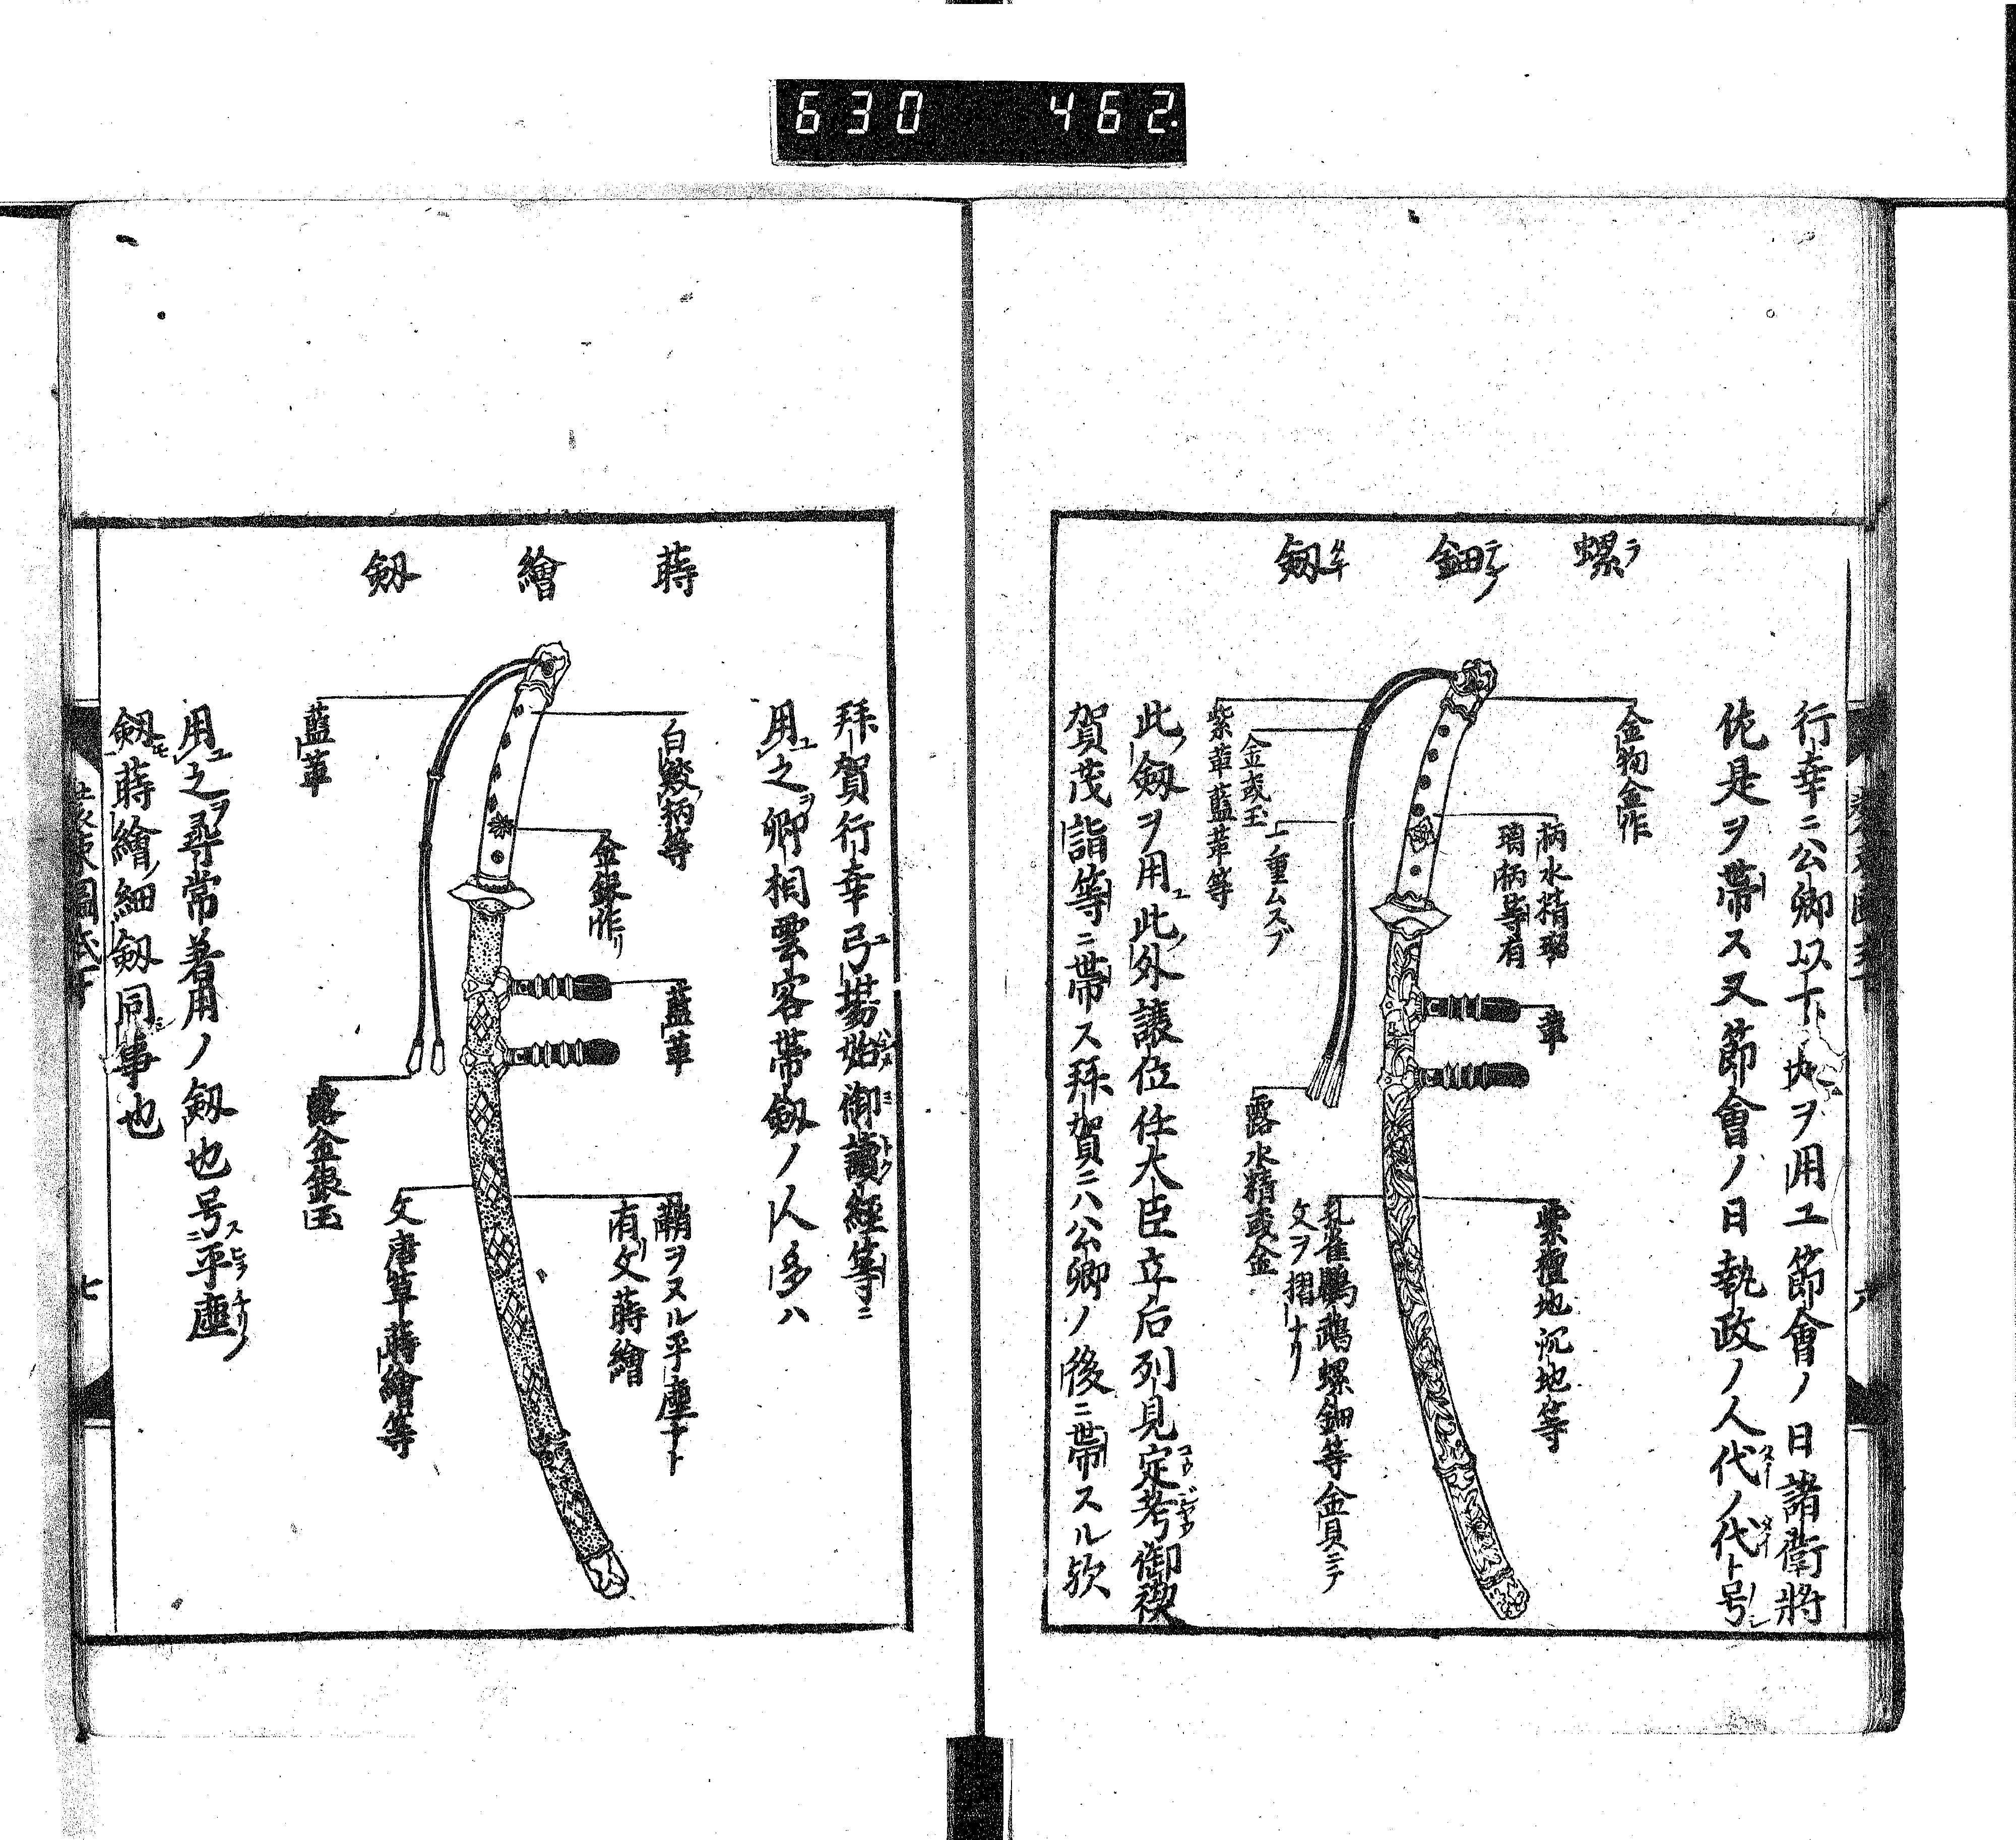 630 462.
螺鈿劔
行幸ニ公卿以下
ヲ用ユ節會ノ日諸衞將
佐是ヲ帶ス又節會ノ日執政ノ人代ノ代ト号
金物金作
柄水精瑠
璃柄等有
韋
紫檀地沉地等
孔雀鸚鵡螺鈿等金貝ニテ
文ヲ摺ナリ
紫革藍革等
金或玉
一重ムスブ
露水精或金
此劔ヲ用ユ此外讓位任大臣立后列見定考御禊
賀茂詣等ニ帶ス拜賀ニハ公卿ノ後ニ帶スル欤
蒔繪劔
拜賀行幸弓場始御讀經等ニ
用之卿相雲客帶劔ノ人多ハ
白鮫柄等
金銀作リ
藍革
鞘ヲヌル平塵ナト
有文蒔繪
藍革
露金銀玉
文唐草蒔繪等
用之ヲ尋常着用ノ劔也号ス平塵
劔蒔繪細劔同事也
七